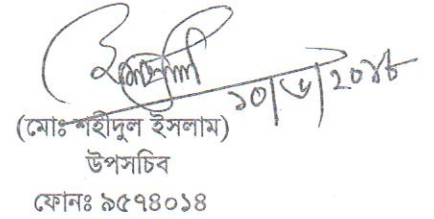 ১০/৬/২০১৮
(মোঃ শহীদুল ইসলাম)
উপসচিব
ফোনঃ ৯৫৭৪০১৪